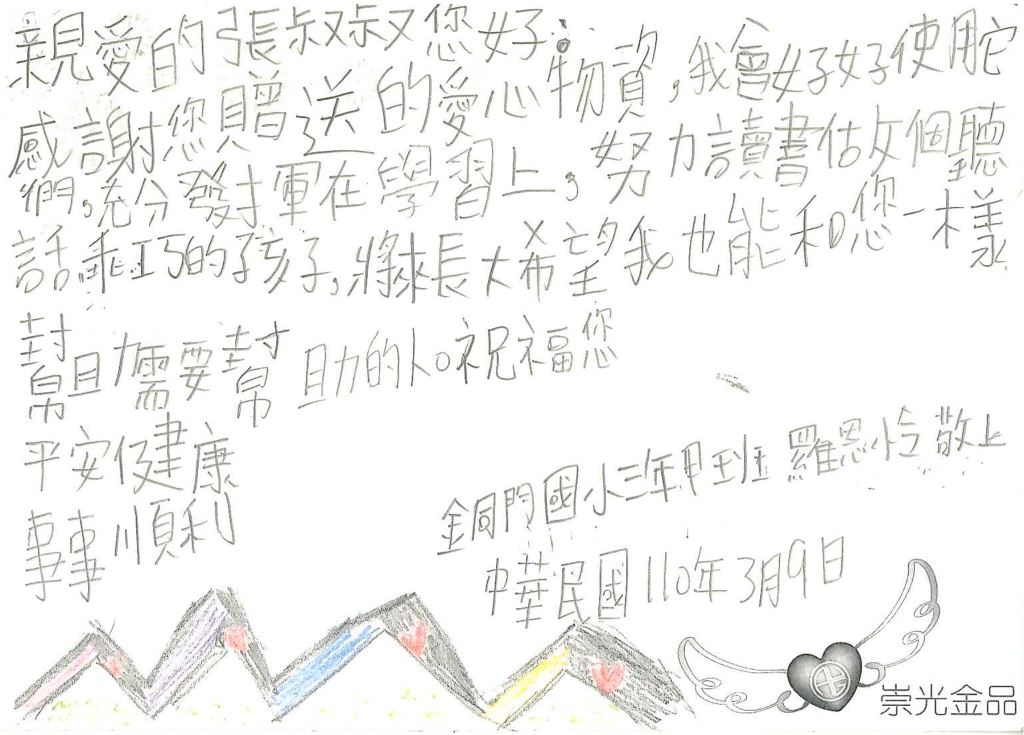 親愛的張叔叔您好:
感謝您贈送的愛心物資,我會好好使用它
們,充分發揮在學習上,努力讀書估攵個聽
話乖巧的孩子,將來長大希望我也能和您一樣
幫助需要幫助的人。祝福您
平安健康
事事順利
銅門國小三年甲班 羅恩怜 敬上
中華民國110年3月9日
崇光金品